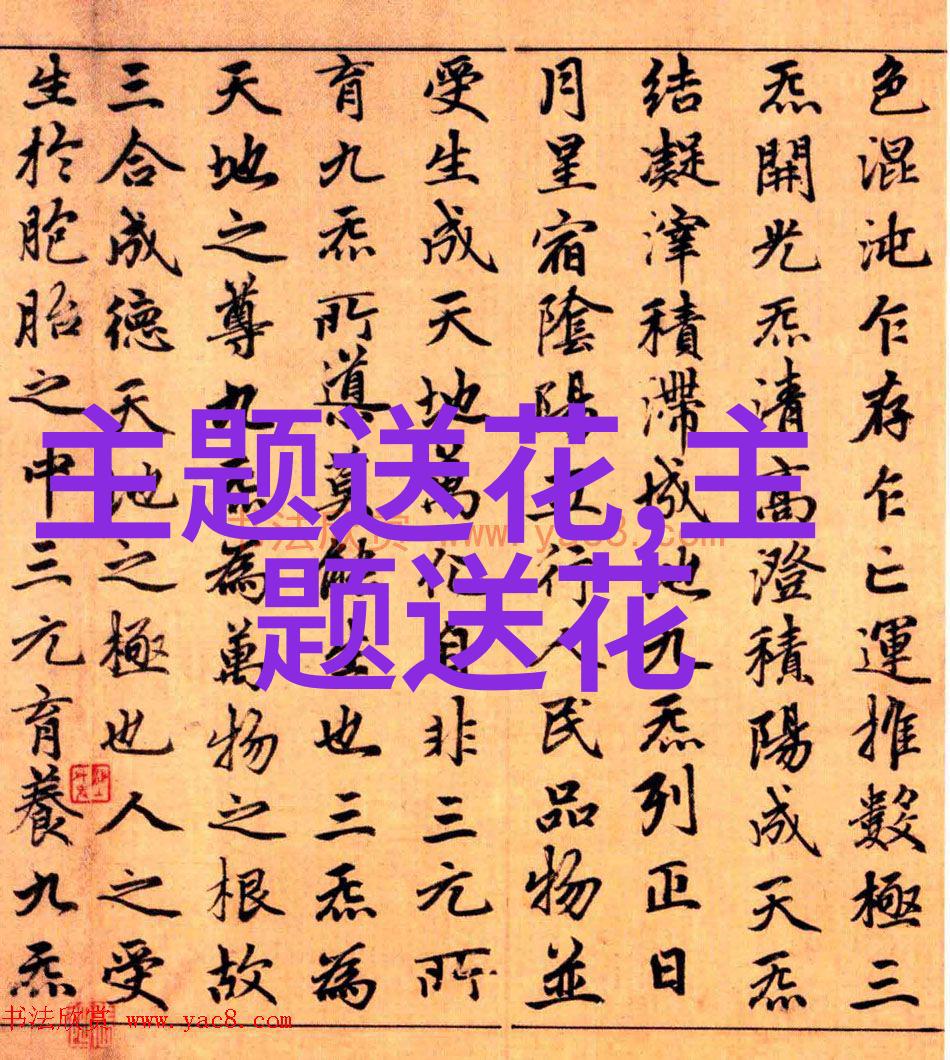 色混沌乍存乍亡運推數極三
炁開光炁清高澄積陽成天炁
結凝滓積滯成地九炁列正日
月星宿陰陽五行人民品物並
受生成天地萬化自非三元所
育九炁所導莫能生也三炁為
天地之尊九炁為萬物之根故
三合成德天地之極也人之受
生於胞胎之中三元育養九炁
主题送花,主
题送花
书法欣赏 www.yac8.com
书法欣赏 www.yac8.com